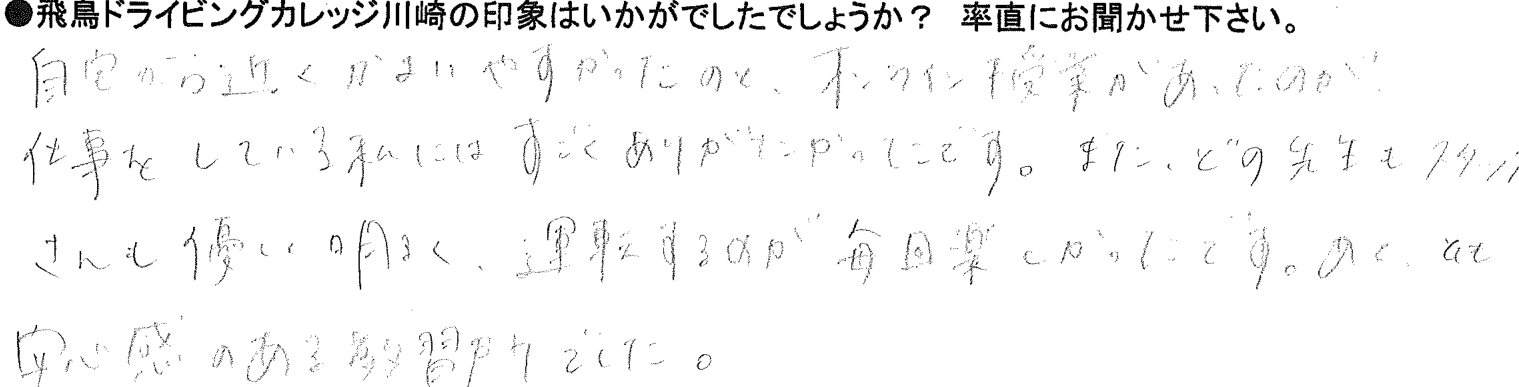 ●飛鳥ドライビングカレッジ川崎の印象はいかがでしたでしょうか？ 率直にお聞かせ下さい。
自宅から近くかよいやすかったのと、オンライン授業があったのが
仕事をしている私にはすごくありがたかったです。また、どの先生もスタッフ
さんも優しい明るく、運転するのが毎回楽しかったです。あと、とも
安心感のある教習所でした。